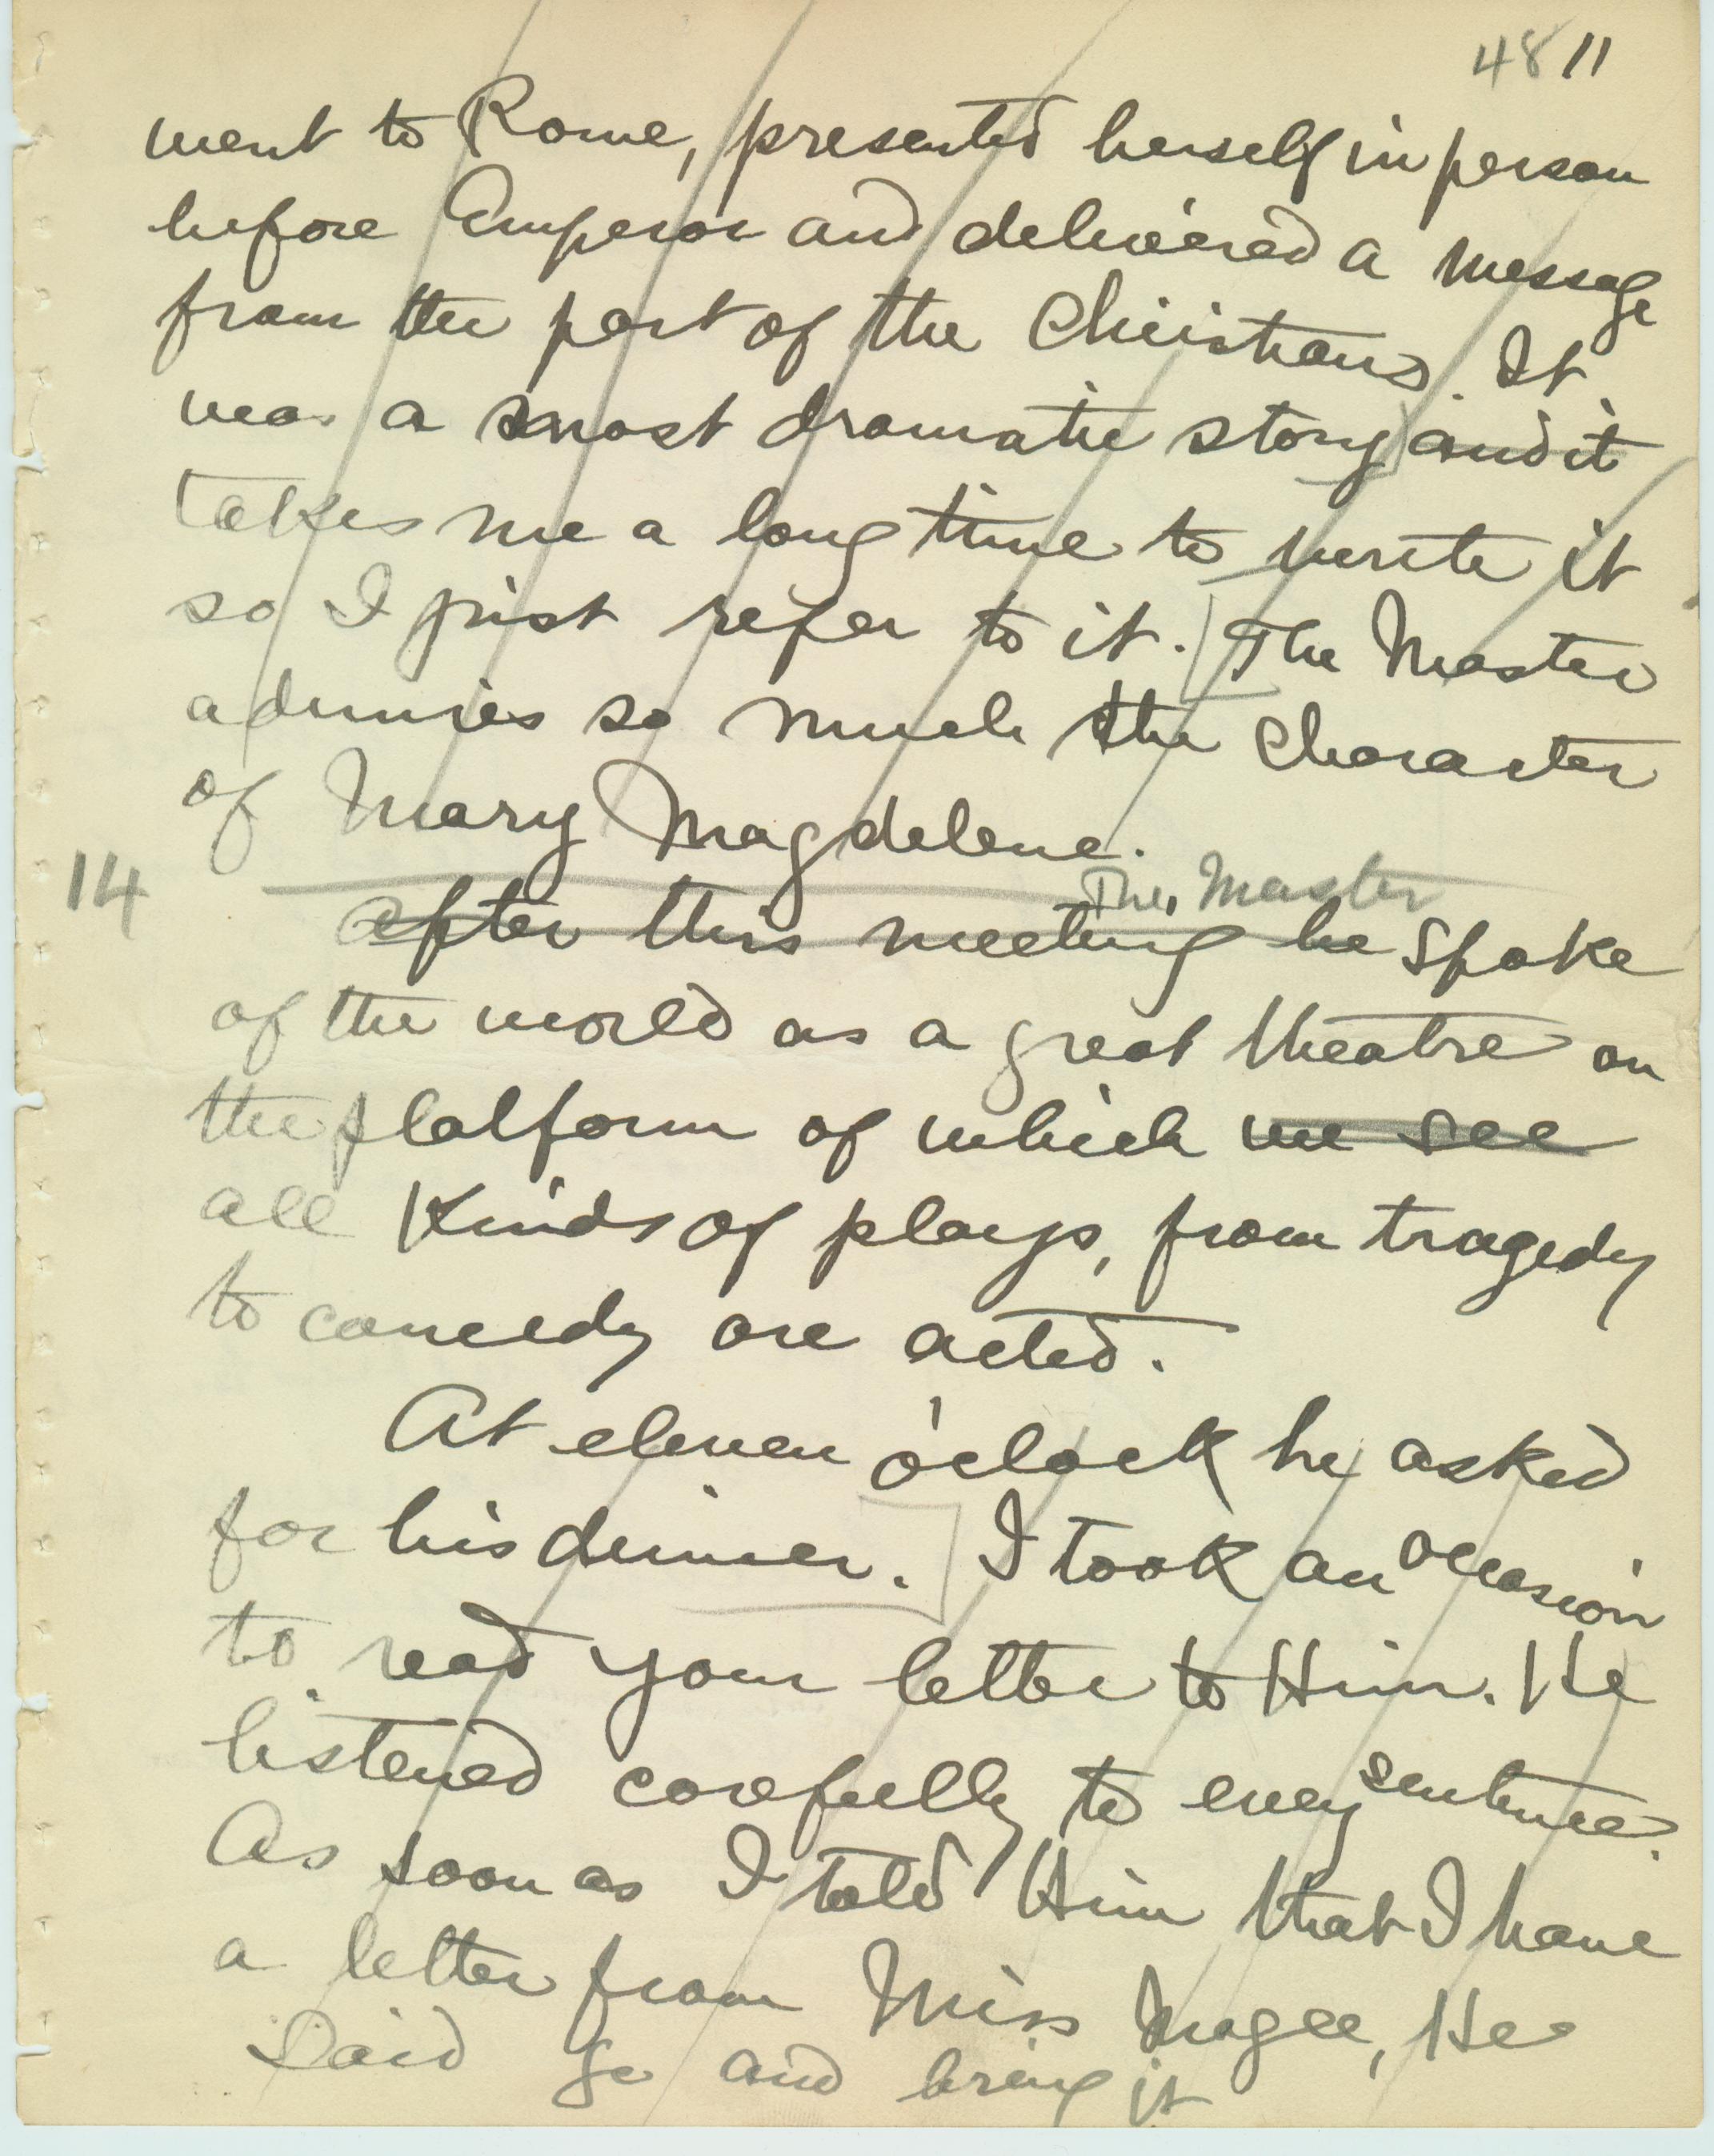 48 11
went to Rome, presented herself in person
before Emperor and delivered a message
from the part of the Christians. It
was a most dramatic story and it
takes me a long time to write it
so I just refer to it. The Master
admires so much the character
of Mary Magdelene.
The Master
14 After this meeting he spoke
of the world as a great theatre on
the platform of which we see
all kinds of plays, from tragedy
to comedy are acted.
At eleven o'clock he asked
for his dinner. I took an occasion
to read your letter to Him. He
listened carefully to every sentence.
As soon as I told Him that I have
a letter from Miss Magee, He
said go and bring it